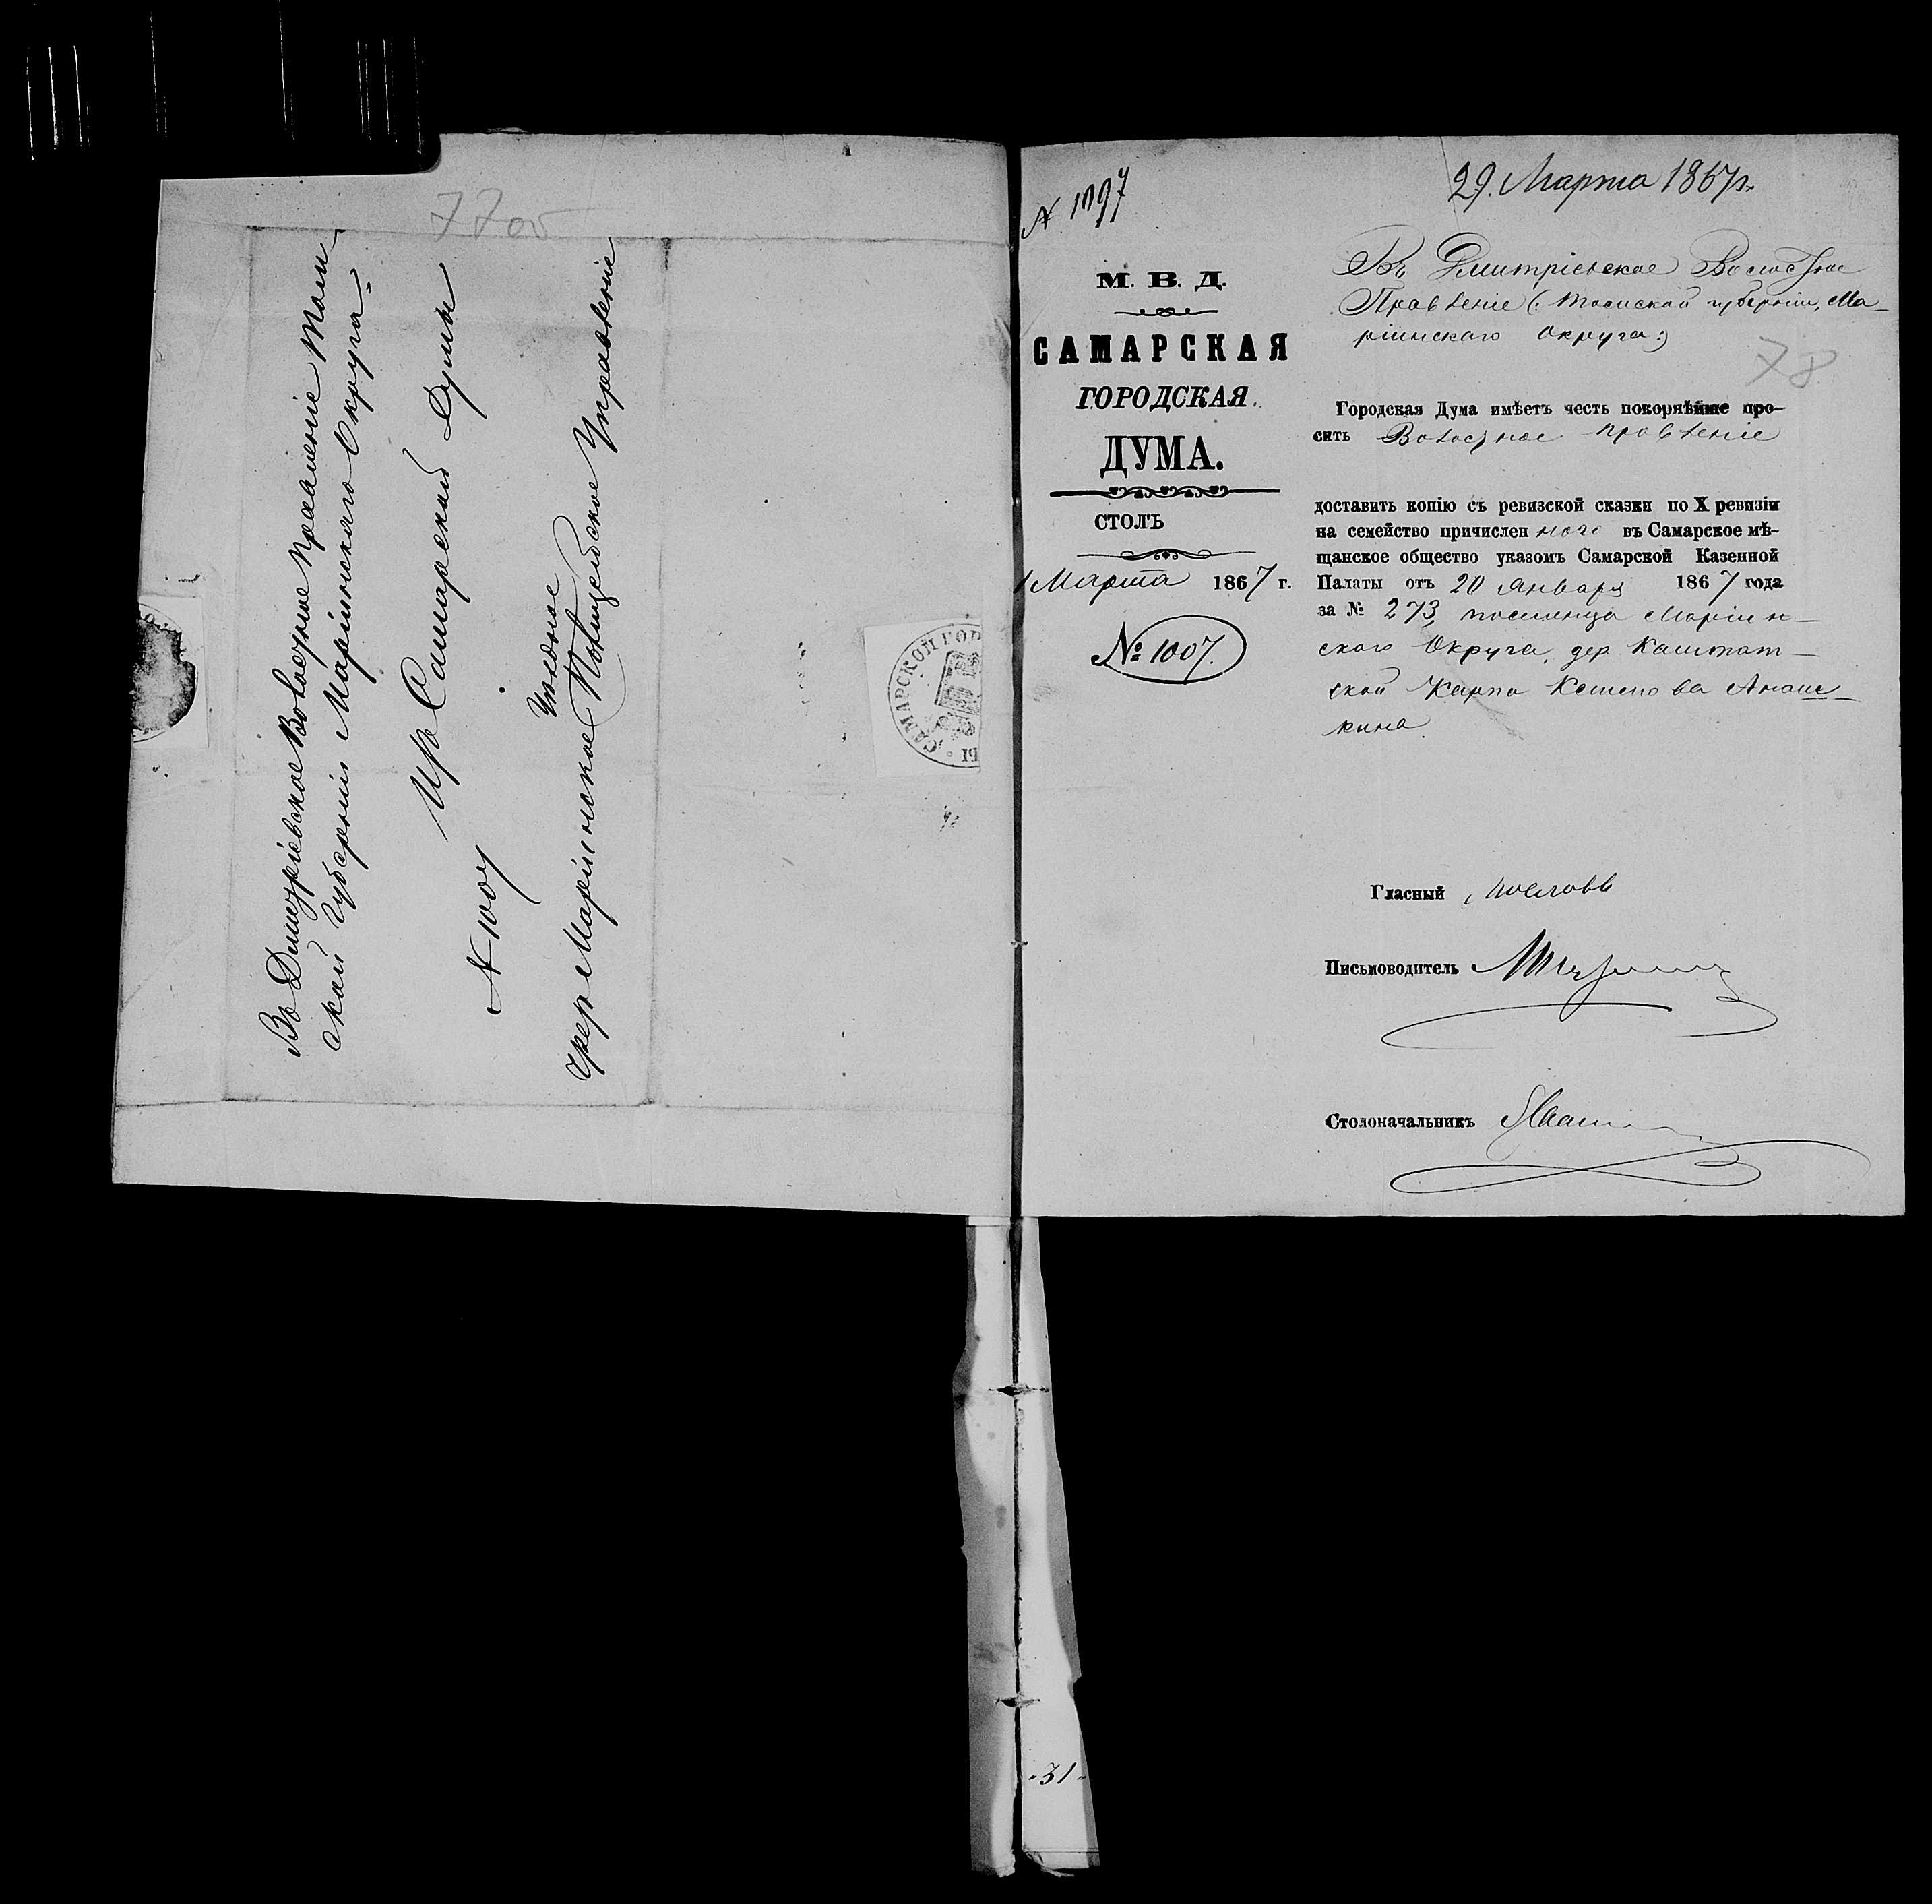 77об
Въ Дмитріевское Волостное Правленіе Том-
ской Губерніи Маріинскаго Округа
Изъ Самарской Думы
№ 1007
Уѣздное
чрез Маріинское Полицейское Управленіе
САМАРСКОЙ ГОР
№ 1097
29. Марта 1867 г.
М. В. Д.
САМАРСКАЯ
ГОРОДСКАЯ
ДУМА.
СТОЛЪ
1 Марта 1867 г.
№ 1007.
Въ Дмитріевское Волостное
Правленіе (: Томской губерніи, Ма-
ріинскаго Округа :)
78
Городская Дума имѣетъ честь покорнѣйше про-
сить Волостное правленіе
доставить копію съ ревизской сказки по X ревизіи
на семейство причисленнаго въ Самарское мѣ-
щанское общество указомъ Самарской Казенной
Палаты отъ 20 Января 1867 года
за № 273, поселенца Маріин-
скаго Округа, дер Каштат-
ской Карпа
кина.
Гласный
Письмоводитель
Столоначальникъ
31